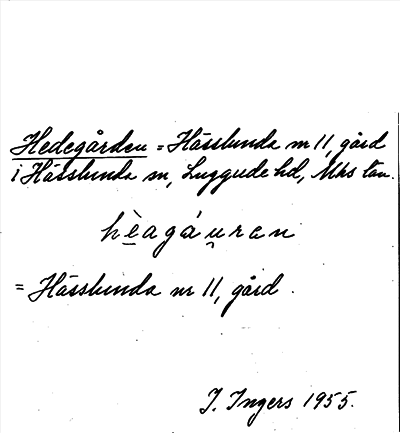 Hedegården = Hässlunda nr 11, gård
i Hässlunda sn, Luggude hd, Mhs län.
hèagáuran
= Hässlunda nr 11, gård.
I. Ingers 1955.